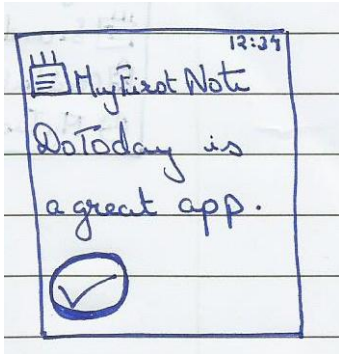 12:34
My First Note
DoToday is
a great app.